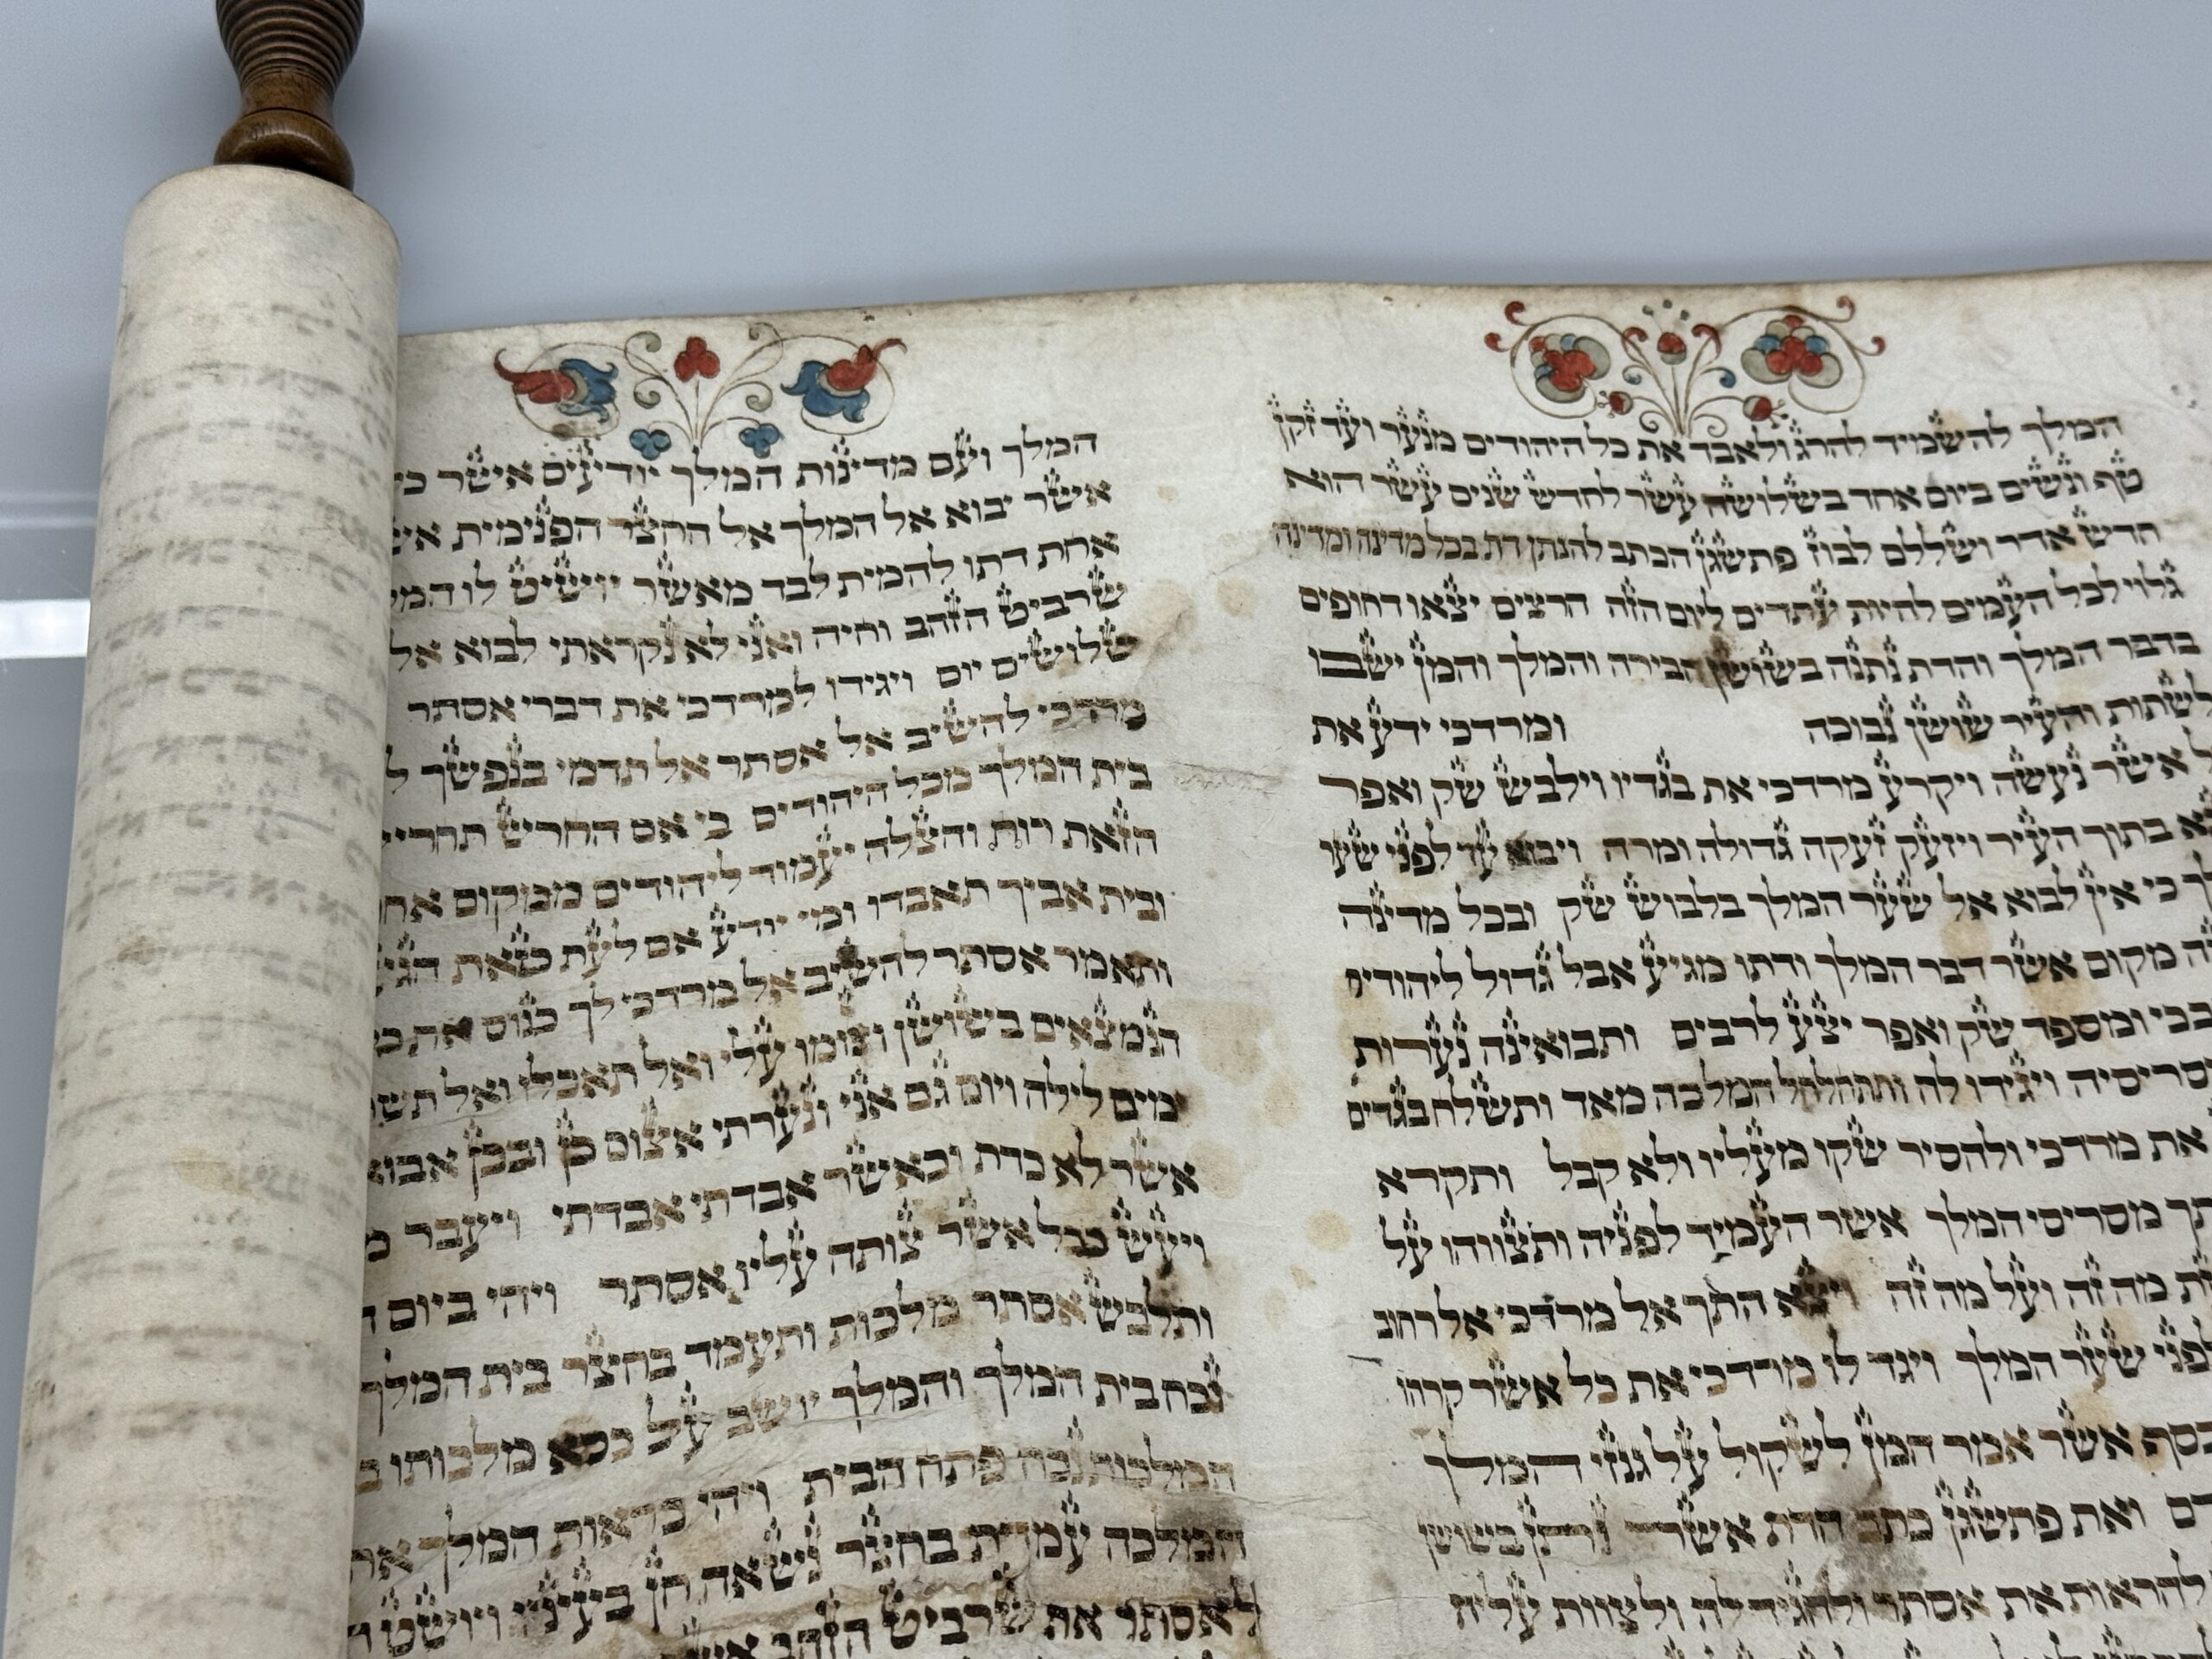 המלך להשמיד להרג ולאבד את כל היהודים מנער ועד זקן
טף ונשים ביום אחד בשלושה עשר לחדש שנים עשר הוא
חדש אדר ושללם לבוז פתשגן הכתב להנתן דת בכל מדינה ומדינה
גלוי לכל העמים להיות עתדים ליום הזה הרצים יצאו דחופים
בדבר המלך והדת נתנה בשושן הבירה והמלך והמן ישבו
לשתות והעיר שושן נבוכה ומרדכי ידע את
אשר נעשה ויקרע מרדכי את בגדיו וילבש שק ואפר
בתוך העיר ויזעק זעקה גדולה ומרה ויבוא עד לפני שער
כי אין לבוא אל שער המלך בלבוש שק ובכל מדינה
מקום אשר דבר המלך ודתו מגיע אבל גדול ליהודים
ובכי ומספד שק ואפר יצע לרבים ותבואינה נערות
וסריסיה ויגידו לה ותתחלחל המלכה מאד ותשלח בגדים
את מרדכי ולהסיר שקו מעליו ולא קבל ותקרא
מסריסי המלך אשר העמיד לפניה ותצווהו על
מה זה ועל מה זה ויצא התך אל מרדכי אל רחוב
לפני שער המלך ויגד לו מרדכי את כל אשר קרהו
אשר אמר המן לשקול על גנזי המלך
ואת פתשגן כתב הדת אשר נתן בשושן
להראות את אסתר ולהגיד לה ולצוות עליה
המלך ועם מדינות המלך יודיעים אשר
אשר יבוא אל המלך אל החצר הפנימית
אחת דתו להמית לבד מאשר יושיט לו
שרביט הזהב וחיה ואני לא נקראתי לבוא אל
שלושים יום ויגידו למרדכי את דברי אסתר
מרדכי להשיב אל אסתר אל תדמי בנפשך
בית המלך מכל היהודים כי אם החרש
הזאת רוח והצלה יעמוד ליהודים ממקום
ובית אביך תאבדו ומי יודע אם לעת כזאת
ותאמר אסתר להשיב אל מרדכי לך כנוס את
הנמצאים בשושן וצומו עלי ואל תאכלו ואל
ימים לילה ויום גם אני ונערתי אצום כן ובכן
אשר לא כדת וכאשר אבדתי אבדתי ויעבר
ויעש ככל אשר צותה עליו אסתר ויהי ביום
ותלבש אסתר מלכות ותעמד בחצר בית המלך
נכח בית המלך והמלך יושב על כסא מלכותו
המלכות נכח פתח הבית ויהי כראות המלך את
המלכה עמדת בחצר נשאה חן בעיניו ויושט
לאסתר את שרביט הזהב